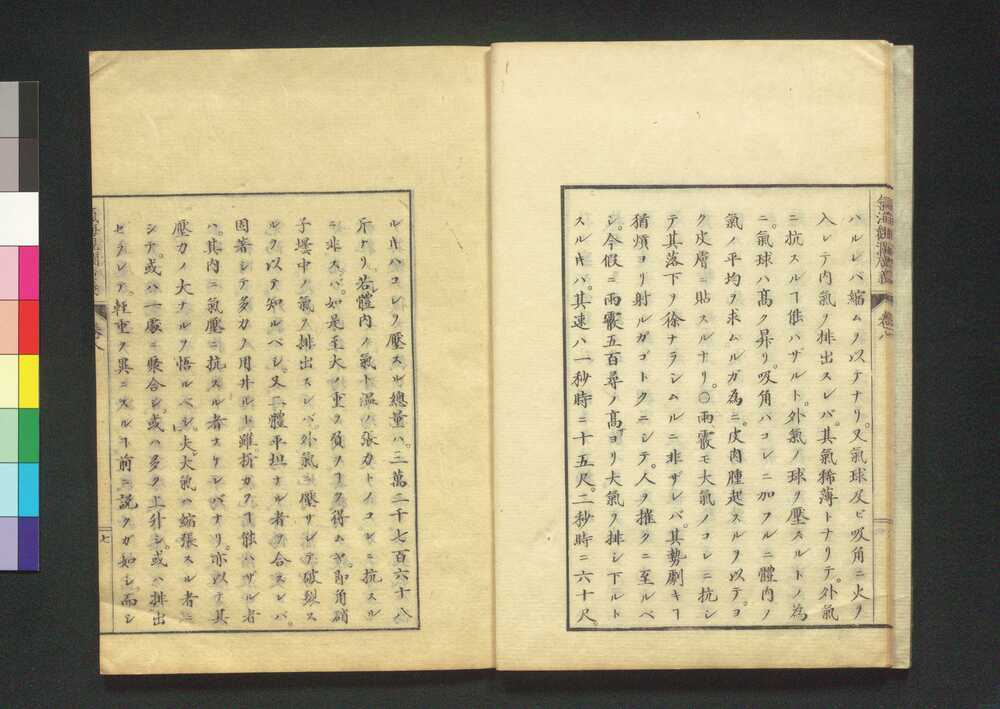 ハルレバ縮ムヲ以テナリ。又氣球及ビ吸角ニ火ヲ
入レテ内氣ヲ排出スレバ。其氣稀薄トナリテ。外氣
ニ抗スルヿ能ハザルト。外氣ノ球ヲ壓スルトノ為
ニ。氣球ハ髙ク昇リ。吸角バコレニ加フルニ體内ノ
氣ノ平均ヲ求ムルガ為ニ。皮肉腫起スルヲ以テ。ヨ
ク皮膚ニ貼スルナリ。〇雨霰モ大氣ノコレニ抗シ
テ其落下ヲ徐ナラシムルニ非ザレバ。其勢劇キヿ
猶煩ヨリ射ルガゴトクニシテ。人ヲ摧クニ至ルベ
シ。今假ニ雨霰五百尋ノ髙ヨリ大氣ヲ排シ下ルト
スルキハ。其速ハ一秒時ニ十五尺。二秒時ニ六十尺。
卷八
ルキハコレヲ壓スル總量ハ。三萬二千七百六十八
斤ナリ。若體内ノ氣ト温ハ張力トノコレニ抗スル
ニ非ズバ。如是至大ノ重ヲ負フヿヲ得ムヤ。即角硝
子罍中ノ氣ヲ排出スレバ。外氣ニ壓サレテ破裂ス
ルヲ以テ知ルベシ。又二體平坦ナル者ヲ合スレバ。
固著シテ多力ヲ用井ルト雖。拆カツヿ能ハザル者
ハ。其内ニ氣壓ニ抗スル者ナケレバナリ。亦以テ其
壓力ノ大ナルヲ悟ルベシ。夫大氣ハ縮張スル者ニ
シテ。或ハ一處ニ聚合シ。或ハ多ク上升シ。或ハ排出
セラレテ。輕重ヲ異ニスルヿ前ニ説クガ如シ。而シ
卷八
七